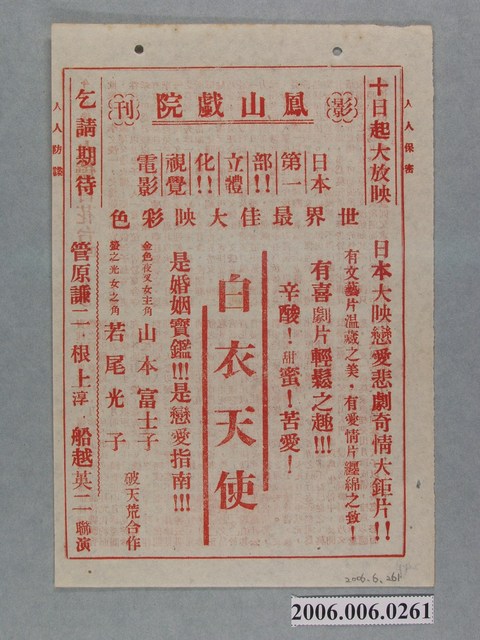 影刊
鳳山戲院
十日起大放映
乞請期待
人人保密
人人防諜
日本第一部!!立體化!!視覺電影
世界最佳大映彩色
日本大映戀愛悲劇奇情大鉅片!!
有文藝片温藏之美,有愛情片纒綿之致!
有喜劇片輕鬆之趣!!!
辛酸!甜蜜!苦愛!
白衣天使
是婚姻寶鑑!!!是戀愛指南!!!
金色夜叉女主角 山本富士子
螢之光女之角 若尾光子
破天荒合作
管原謙二,根上淳,船越英二聯演
2006.6.261
2006.006.0261